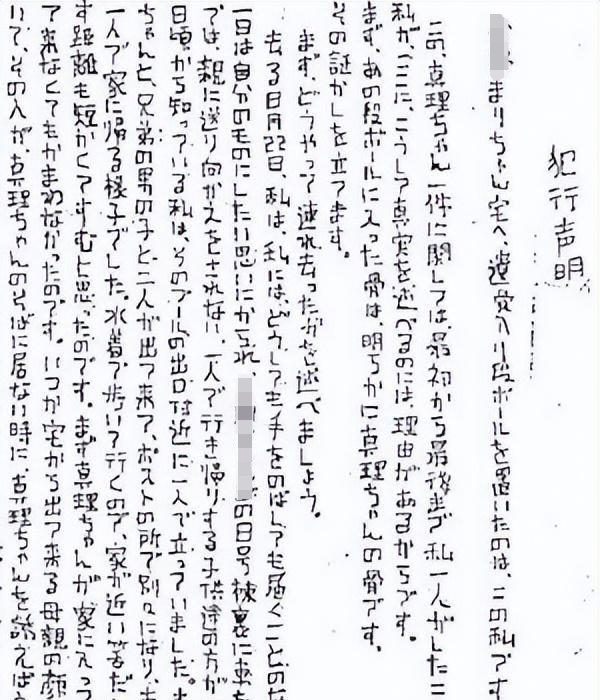 犯行声明
まりちゃん宅へ、遺骨入り段ボールを置いたのは、この私です
この、真理ちゃん一件に関しては、最初から最後まで私一人がしたこ
私が、ここに、こうして真実を述べるのには、理由があるからです。
まず、あの段ボールに入った骨は、明らかに真理ちゃんの骨です。
その証かしを立てます。
まず、どうやって連れ去ったかを述べましょう。
去る8月22日、私は、私には、どうしても手をのばしても届くことのな
一日は自分のものにしたい思いにかられ、
の日号棟裏に車を
では、親に送り向かえをされない、一人で行き帰りする子供達の方が
日頃から知っている私は、そのプールの出口付近に一人で立っていました。
ちゃんと、兄弟の男の子と二人が出て来て、ポストの所で別々になり、
一人で家に帰る様子でした。水着で歩いて行くので、家が近い筈だ
す距離も短かくてすむと思ったのです。まず真理ちゃんが家に入って
て来なくてもかまわなかったのです。いつか宅から出て来る母親の顔
いて、その人が、真理ちゃんのそばに居ない時に、真理ちゃんを誘えば